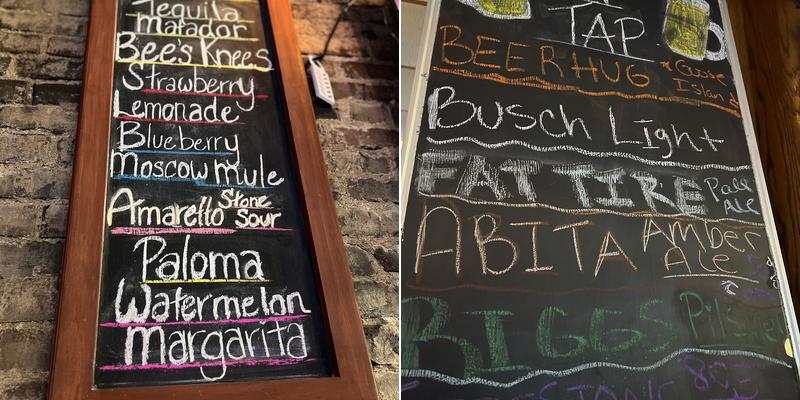 Tequila
matador
Bee's Knees
Strawberry
Lemonade
Blueberry
Moscow mule
Amaretto Stone Sour
Paloma
Watermelon
margarita
TAP
BEER HUG Goose Island
Busch Light
FAT TIRE Pale Ale
ABITA Amber Ale
BIGGS Pilsner